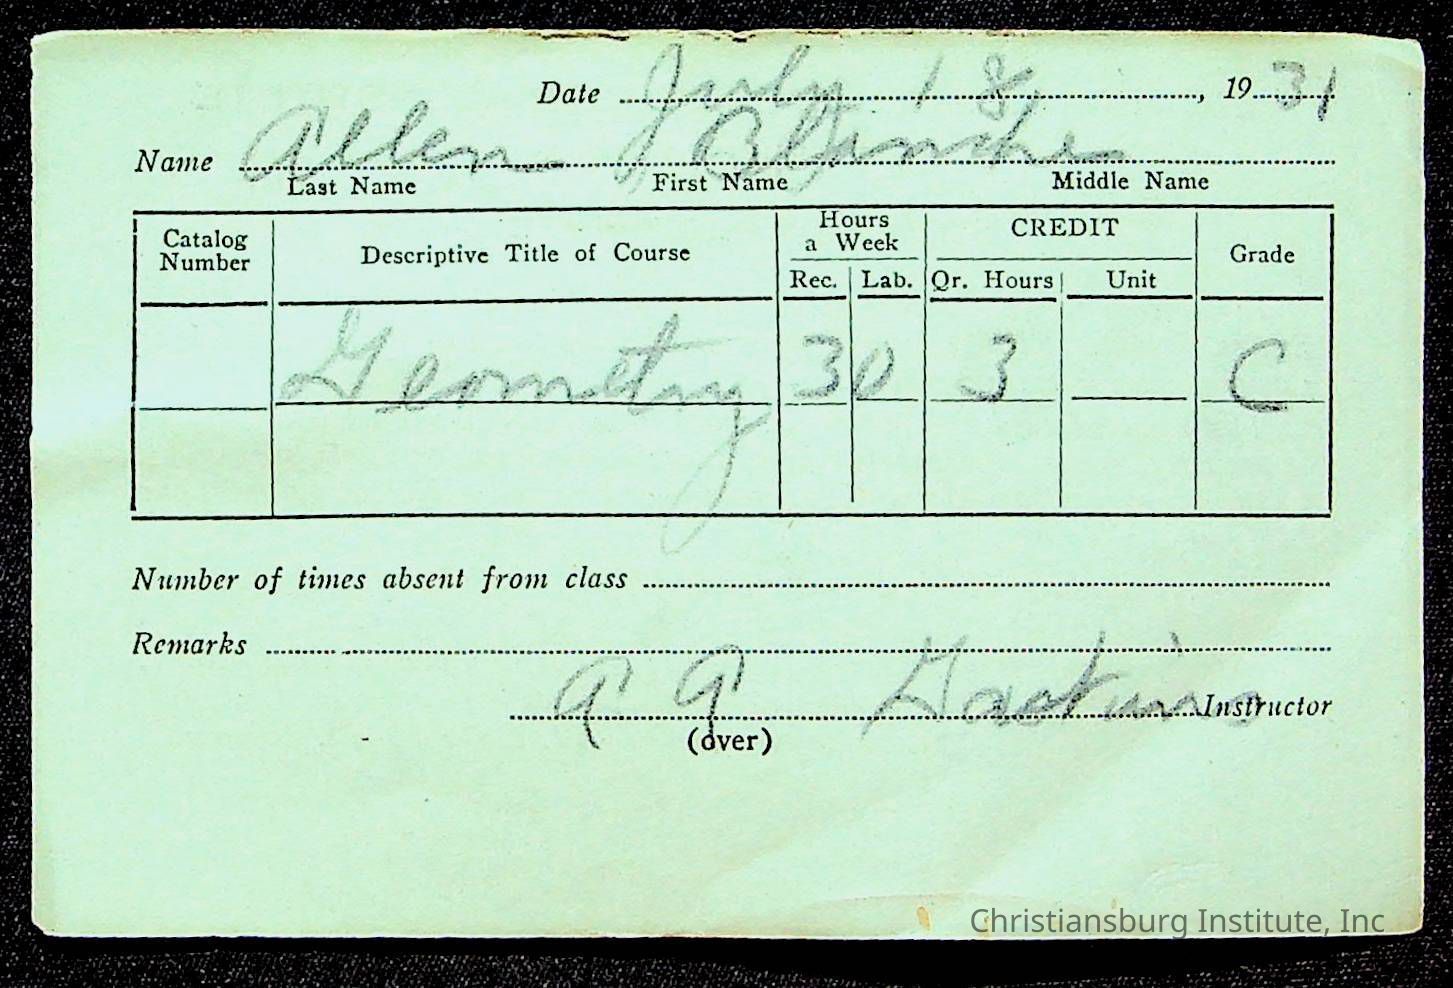 Date July 18, 1931
Name Allen Blanche
Last Name First Name Middle Name
Catalog Number Descriptive Title of Course Hours a Week CREDIT Grade
Rec. Lab. Qr. Hours Unit
Geometry 3 0 3 C
Number of times absent from class
Remarks
Instructor
(over)
Christiansburg Institute, Inc